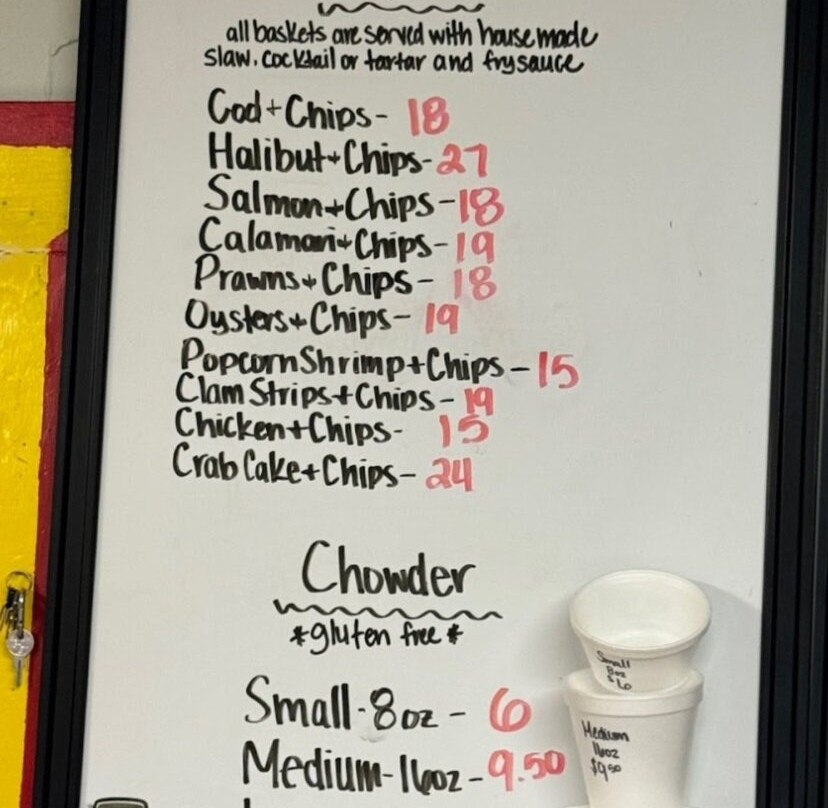 all baskets are served with house made
slaw, cocktail or tartar and fry sauce
Cod + Chips - 18
Halibut + Chips - 27
Salmon + Chips - 18
Calamari + Chips - 19
Prawns + Chips - 18
Oysters + Chips - 19
Popcorn Shrimp + Chips - 15
Clam Strips + Chips - 19
Chicken + Chips - 15
Crab Cake + Chips - 24
Chowder
*gluten free*
Small
8oz
$6
Small - 8oz - 6
Medium
16oz
$9.50
Medium - 16oz - 9.50